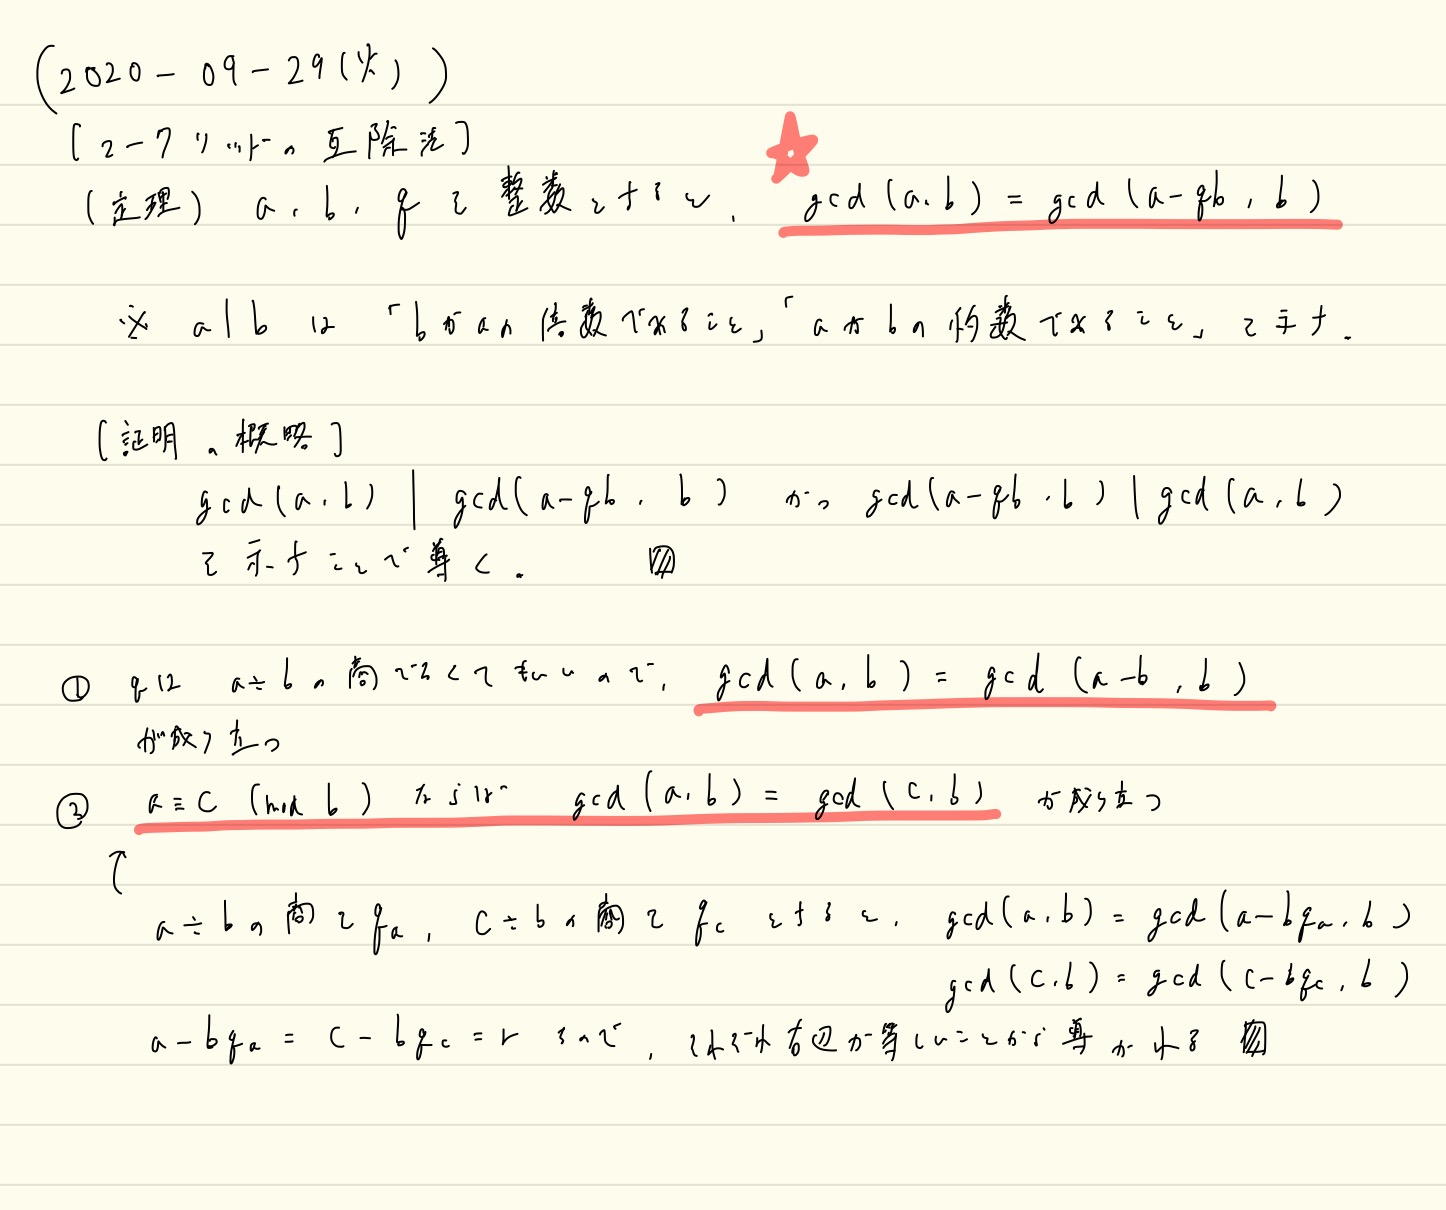 (2020-09-29(火))
[ユークリッドの互除法]
(定理) a, b, q を整数とすると, gcd(a,b) = gcd(a-qb, b)
※ a|b は「bがaの倍数であること」「aがbの約数であること」を示す.
[証明の概略]
gcd(a,b) | gcd(a-qb, b) かつ gcd(a-qb, b) | gcd(a,b)
を示すことで導く.
① qは a÷bの商でなくてもいいので, gcd(a,b) = gcd(a-b, b)
が成り立つ
② a≡c (mod b) ならば gcd(a,b) = gcd(c,b) が成り立つ
↑
a÷bの商を qa, c÷bの商を qc とすると, gcd(a,b) = gcd(a-bqa, b)
gcd(c,b) = gcd(c-bqc, b)
a-bqa = c-bqc = r なので, それぞれ右辺が等しいことから導かれる